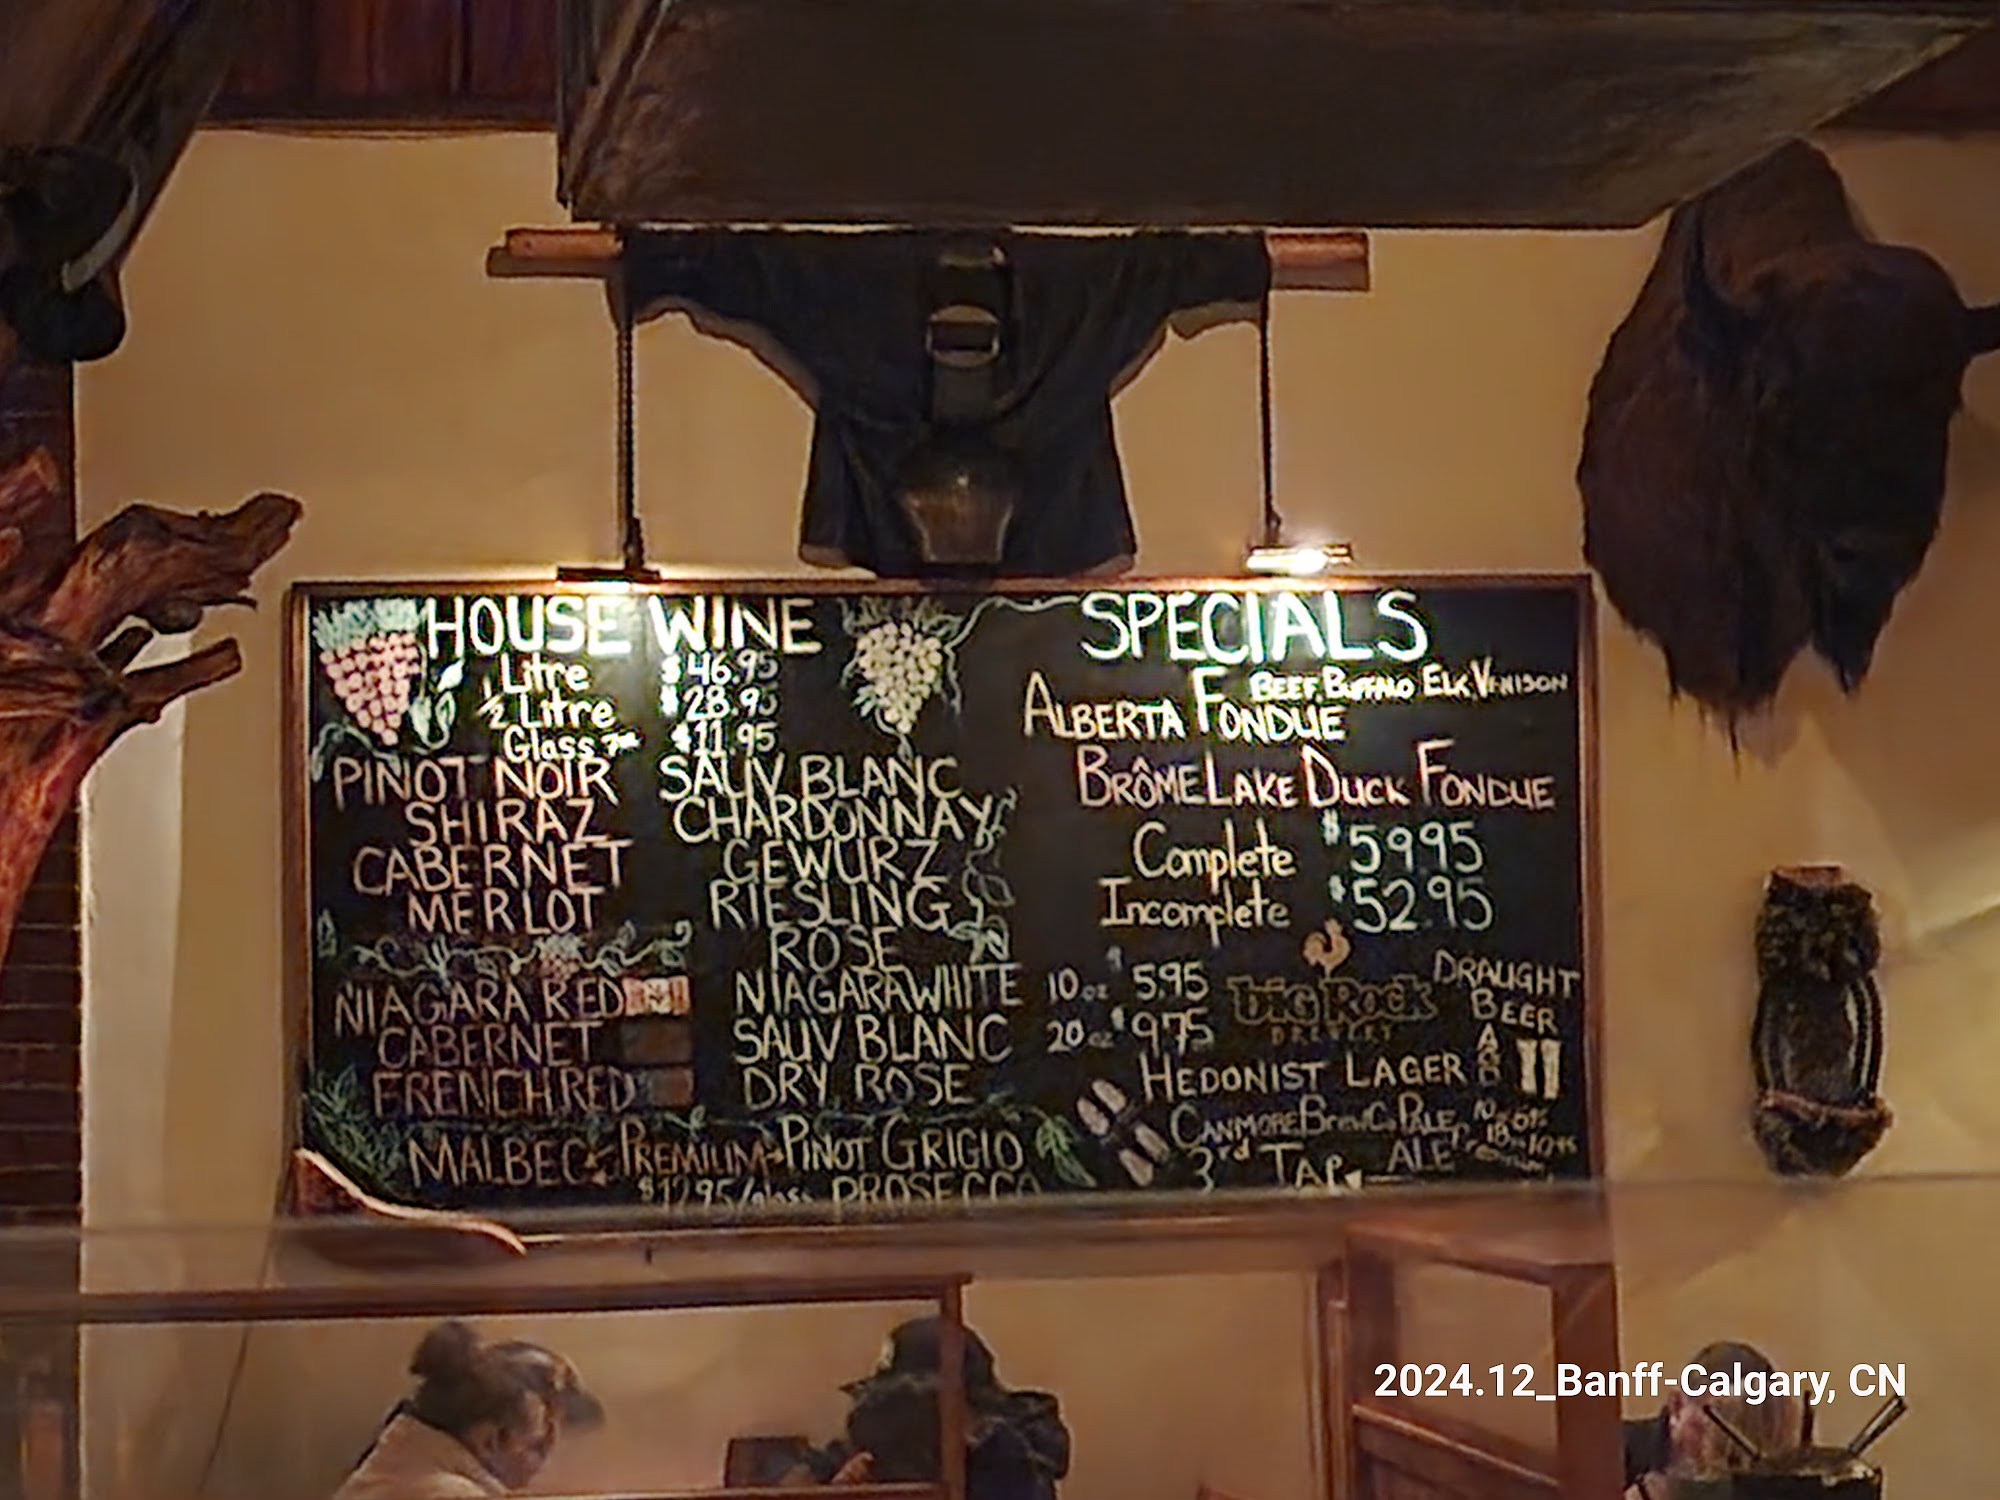 HOUSE WINE
Litre $46.95
½ Litre $28.95
Glass 7oz $11.95
PINOT NOIR
SHIRAZ
CABERNET
MERLOT
NIAGARA RED
CABERNET
FRENCH RED
SAUV BLANC
CHARDONNAY
GEWURZ
RIESLING
ROSE
NIAGARA WHITE
SAUV BLANC
DRY ROSE
MALBEC PREMIUM PINOT GRIGIO
$12.95/glass PROSECCO
SPECIALS
BEEF, BUFFALO ELK, VENISON
ALBERTA FONDUE
BRÔME LAKE DUCK FONDUE
Complete $59.95
Incomplete $52.95
10 oz $5.95
20 oz $9.75
big Rock
BREWERY
DRAUGHT
BEER
HEDONIST LAGER
CANMORE BREW CO PALE
ALE
3rd TAP
2024.12_Banff-Calgary, CN